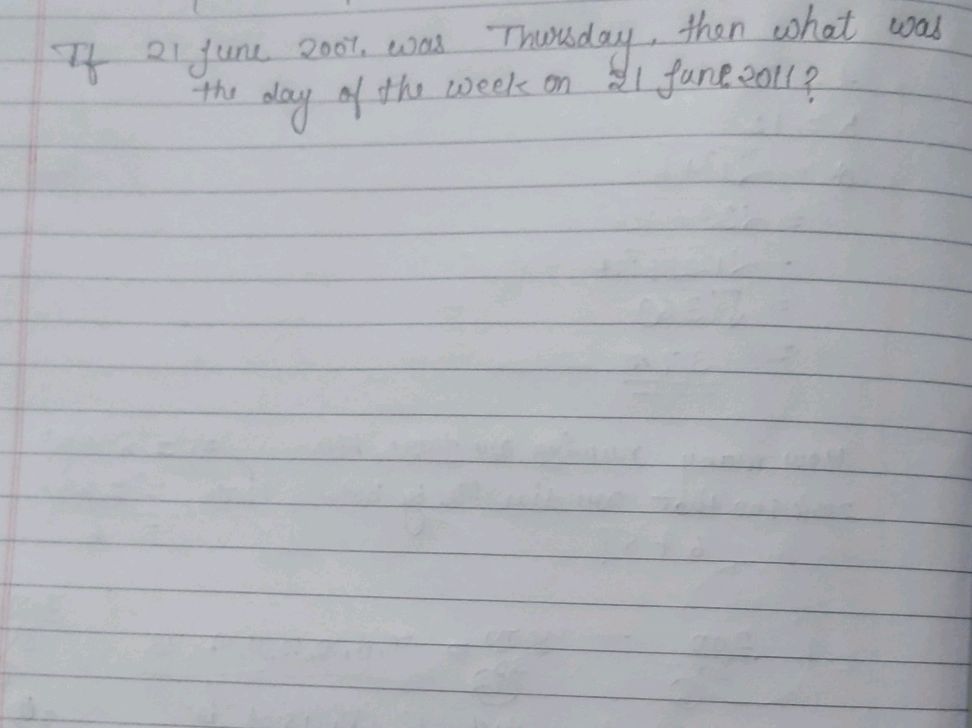 If 21 June 2007. was Thursday, then what was
the day of the week on 21 June 2011?